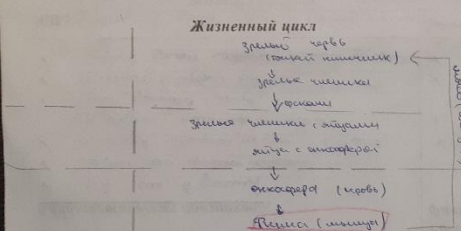 Жизненный цикл
зрелый червь
(тощий кишечник)
зрелые членики
фекалии
зрелые членики с яйцами
яйца с онкосферой
онкосфера (кровь)
Финна (мышцы)